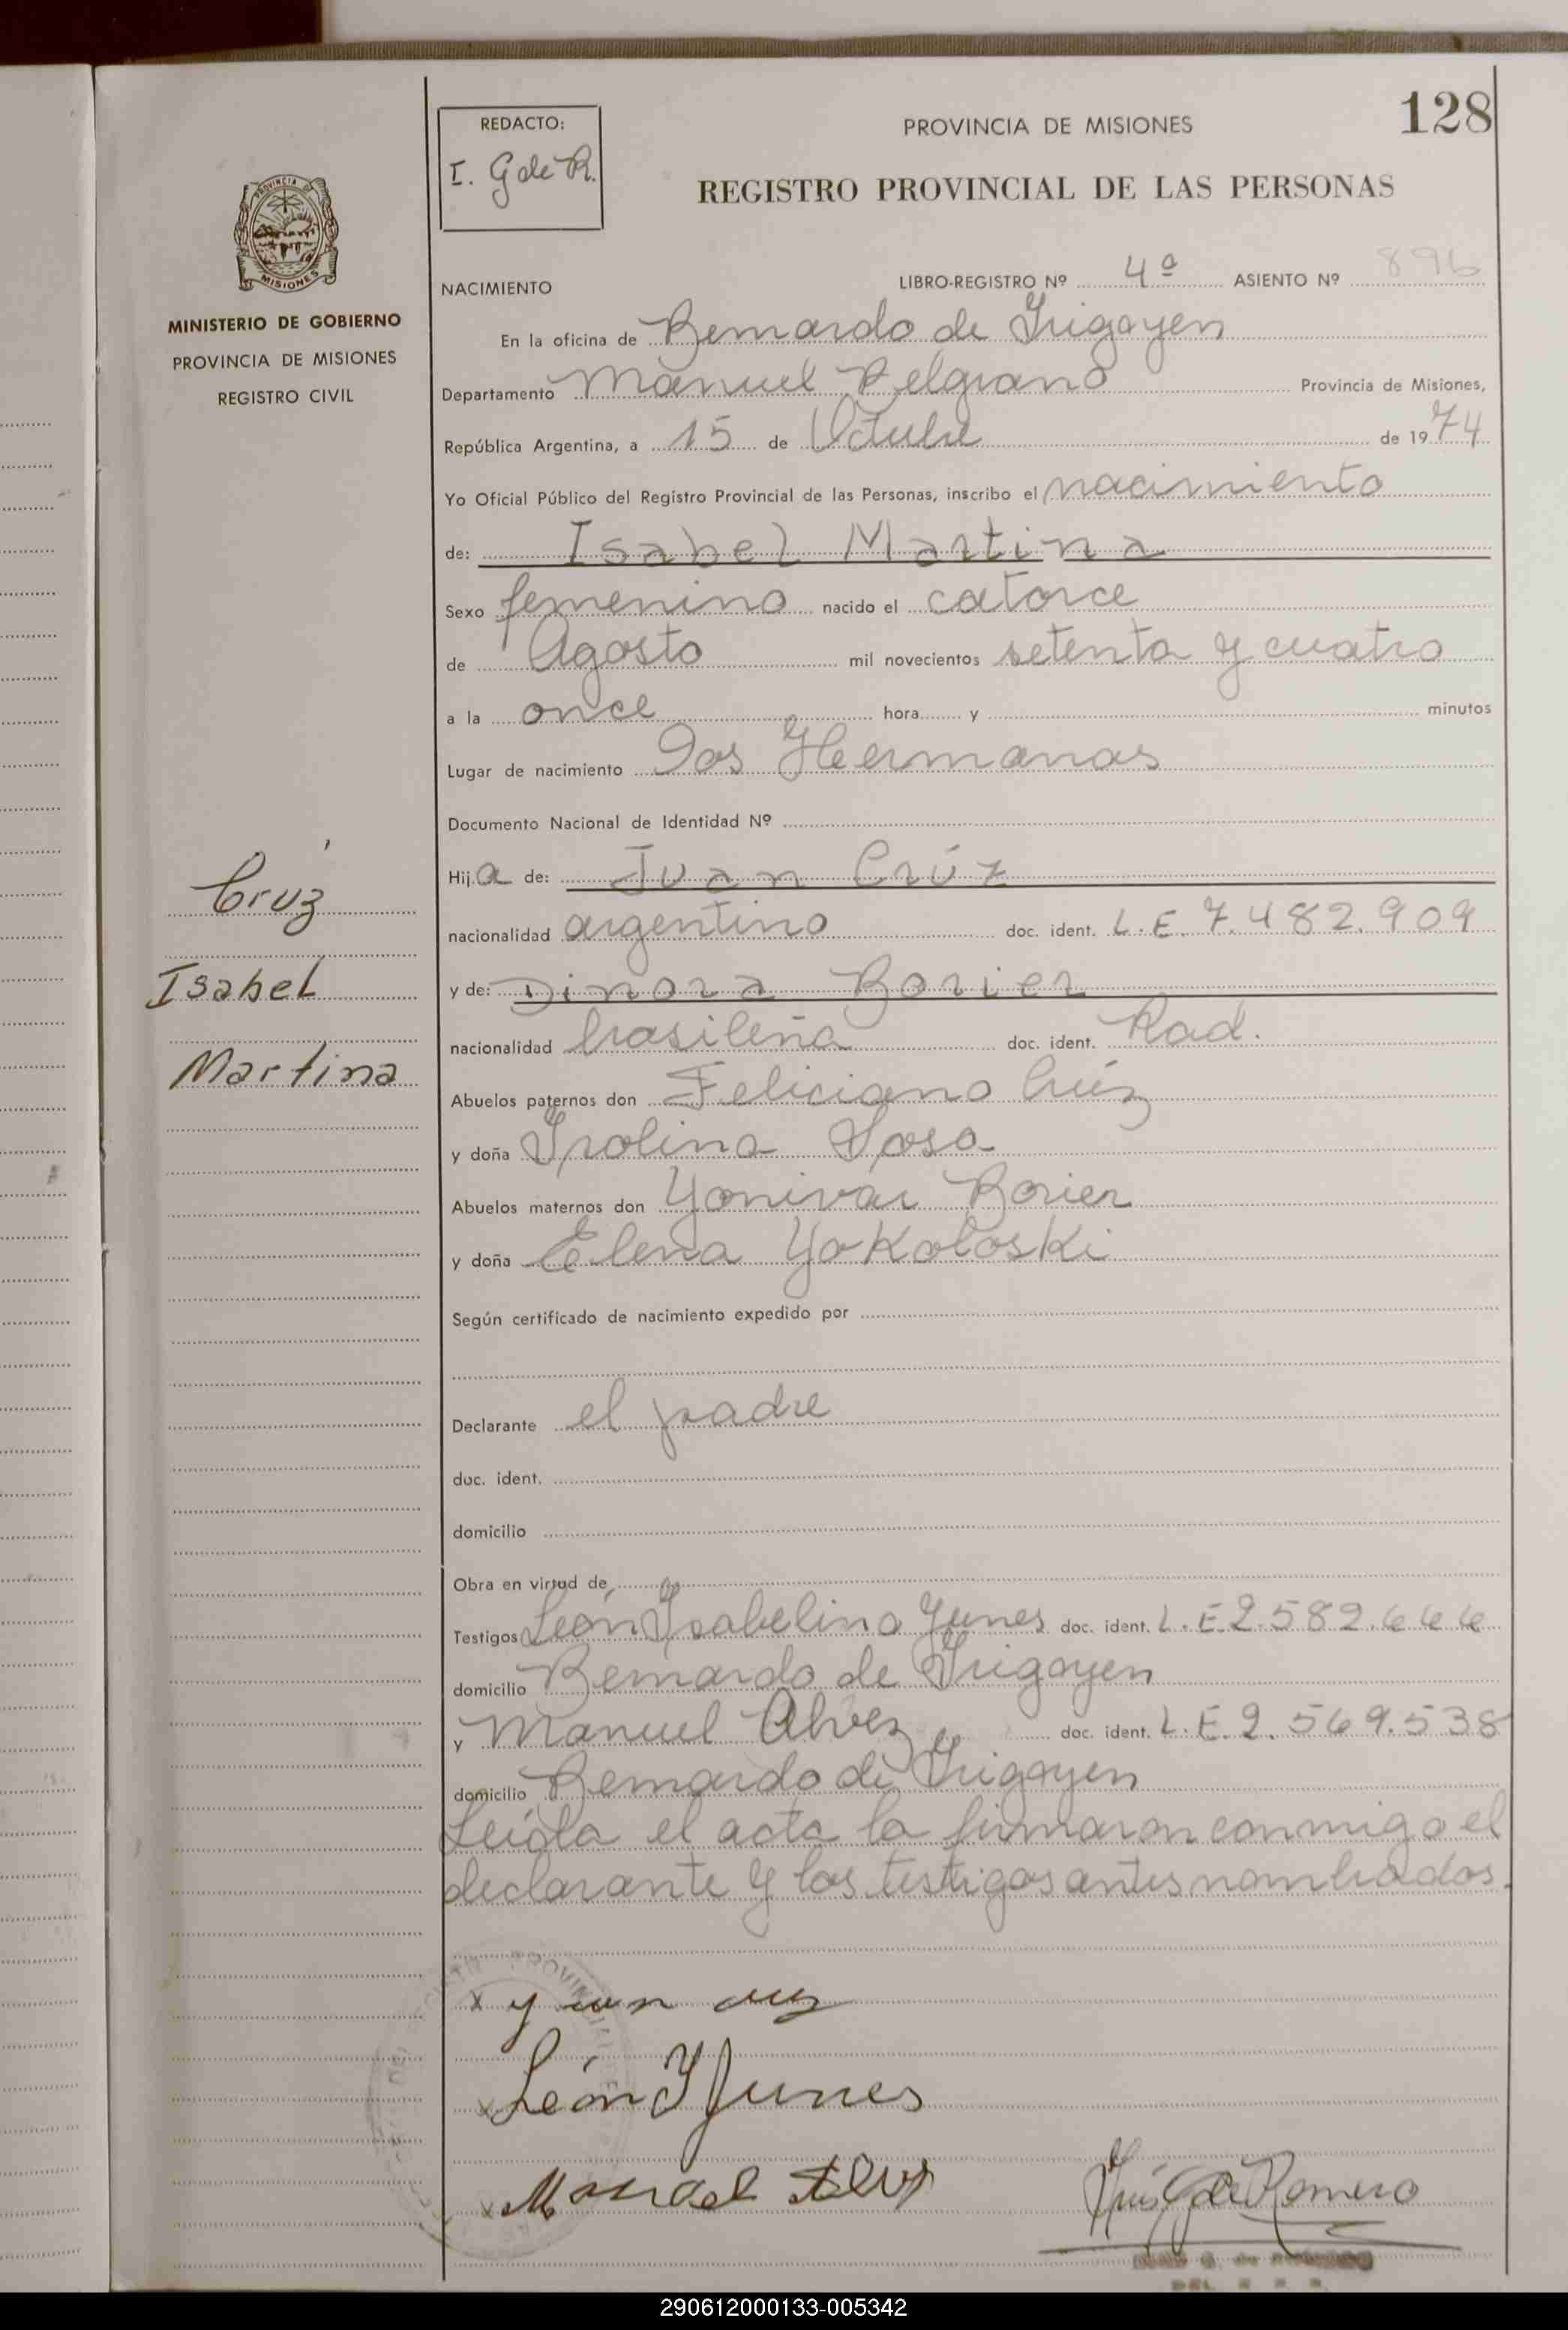 128
REDACTO:
I. G de R.
PROVINCIA DE MISIONES
REGISTRO PROVINCIAL DE LAS PERSONAS
PROVINCIA DE
MISIONES
MINISTERIO DE GOBIERNO
PROVINCIA DE MISIONES
REGISTRO CIVIL
NACIMIENTO LIBRO-REGISTRO Nº 4º ASIENTO Nº 896
En la oficina de Bernardo de Yrigoyen
Departamento Manuel Belgrano Provincia de Misiones,
República Argentina, a 15 de Octubre de 1974
Yo Oficial Público del Registro Provincial de las Personas, inscribo el nacimiento
de: Isabel Martina
Sexo femenino nacido el catorce
de Agosto mil novecientos setenta y cuatro
a la once hora y minutos
Lugar de nacimiento Dos Hermanas
Documento Nacional de Identidad Nº
Hija de: Juan Crúz
Cruz
nacionalidad argentino doc. ident. L.E. 7.482.909
Isabel
y de: Dinora Borier
nacionalidad brasileña doc. ident. Rad.
Martina
Abuelos paternos don Feliciano Crúz
y doña Yrolina Sosa
Abuelos maternos don Yonivar Borier
y doña Elena Yokoloski
Según certificado de nacimiento expedido por
Declarante el padre
doc. ident.
domicilio
Obra en virtud de
Testigos León Ysabelino Yunes doc. ident. L.E 2.582.644
domicilio Bernardo de Yrigoyen
y Manuel Alvez doc. ident. L.E. 2.569.538
domicilio Bernardo de Yrigoyen
Leída el acta la firmaron conmigo el
declarante y los testigos antes nombrados.
x
x León Y Junes
x Manuel
G de Romero
290612000133-005342